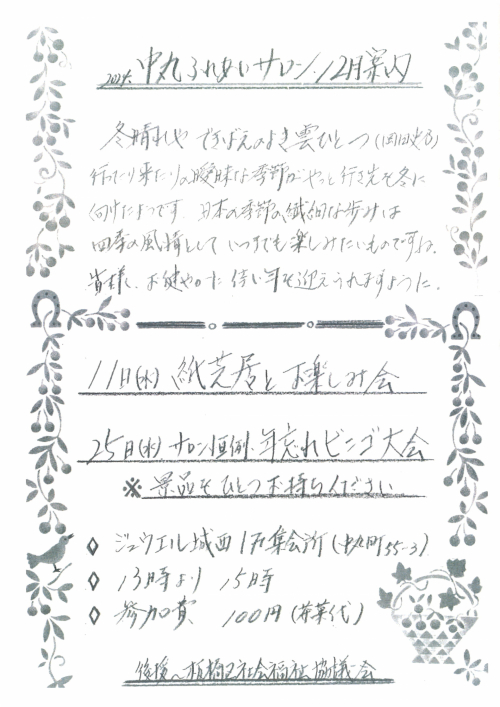 2024. 中丸ふれあいサロン.12月案内
冬晴れや できばえのよき雲ひとつ
行ったり来たりの曖昧な季節がやっと行き先を冬に
向けたようです。日本の季節の繊細な歩みは
四季の風情として いつまでも楽しみたいものですね。
皆様、お健やかた 佳い年を迎えられますように。
11日(水) 紙芝居と お楽しみ会
25日(水) サロン恒例.年忘れビンゴ大会
※ 景品をひとつお持ちください
◇ ジュウエル城西 1F集会所 (中丸町55-3)
◇ 13時より 15時
◇ 参加費 100円 (茶菓代)
後援〜板橋区社会福祉協議会